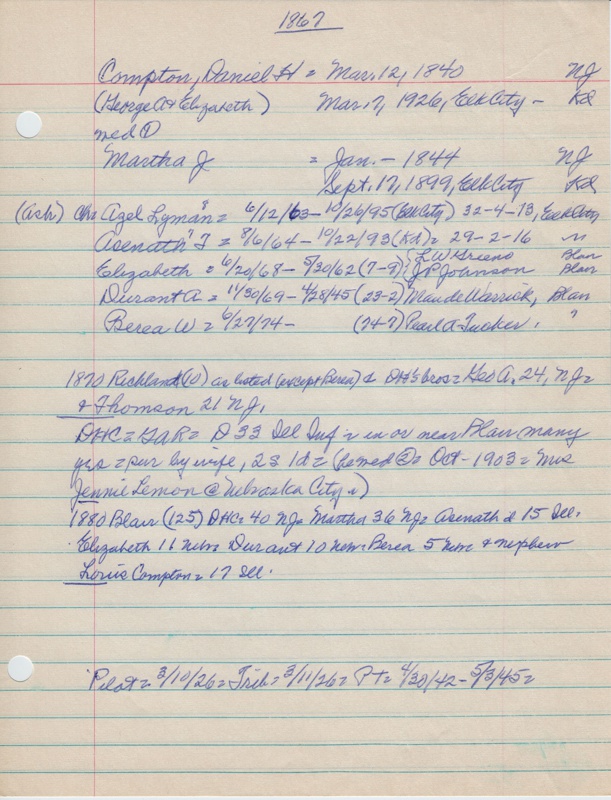 1867
Compton, Daniel H = Mar. 12, 1840 NJ
(George A & Elizabeth) Mar. 7, 1926, Elk City - Kd
med ①
Martha J = Jan. - 1844 NJ
Sept. 17, 1899, Elk City Kd
(Ash) Ch= Azel Lyman = 6/12/63 - 10/26/95 (Elk City) 32-4-13, Elk City
Asenath J = 8/6/64 - 10/22/93 (Kd) = 29-2-16 "
Elizabeth = 6/20/68 - 5/30/62 (7-9) { L W Greeno Blair
J P Johnson Blair
Durant A = 11/30/69 - 4/28/45 (23-2) Maude Warrick, Blair
Berea W = 6/27/74 - (74-7) Pearl A Tucker, ?
1870 Richland (10) as listed (except Berea) & DH's bros = Geo A, 24, NJ =
& Thomson 21 NJ.
DHC = GAR = D 33 Ill Inf = in or near Blair many
yrs = sur by wife, 2s 1d = (he med ② = Oct - 1903 = Mrs
Jennie Lemon @ Nebraska City =)
1880 Blair (125) DHC = 40 NJ = Martha 36 NJ = Asenath d 15 Ill =
Elizabeth 11 Neb = Durant 10 Neb = Berea 5 Neb & nephew
Louis Compton = 17 Ill.
Pilot = 3/10/26 = Trib = 3/11/26 = PT = 4/30/42 - 5/3/45 =